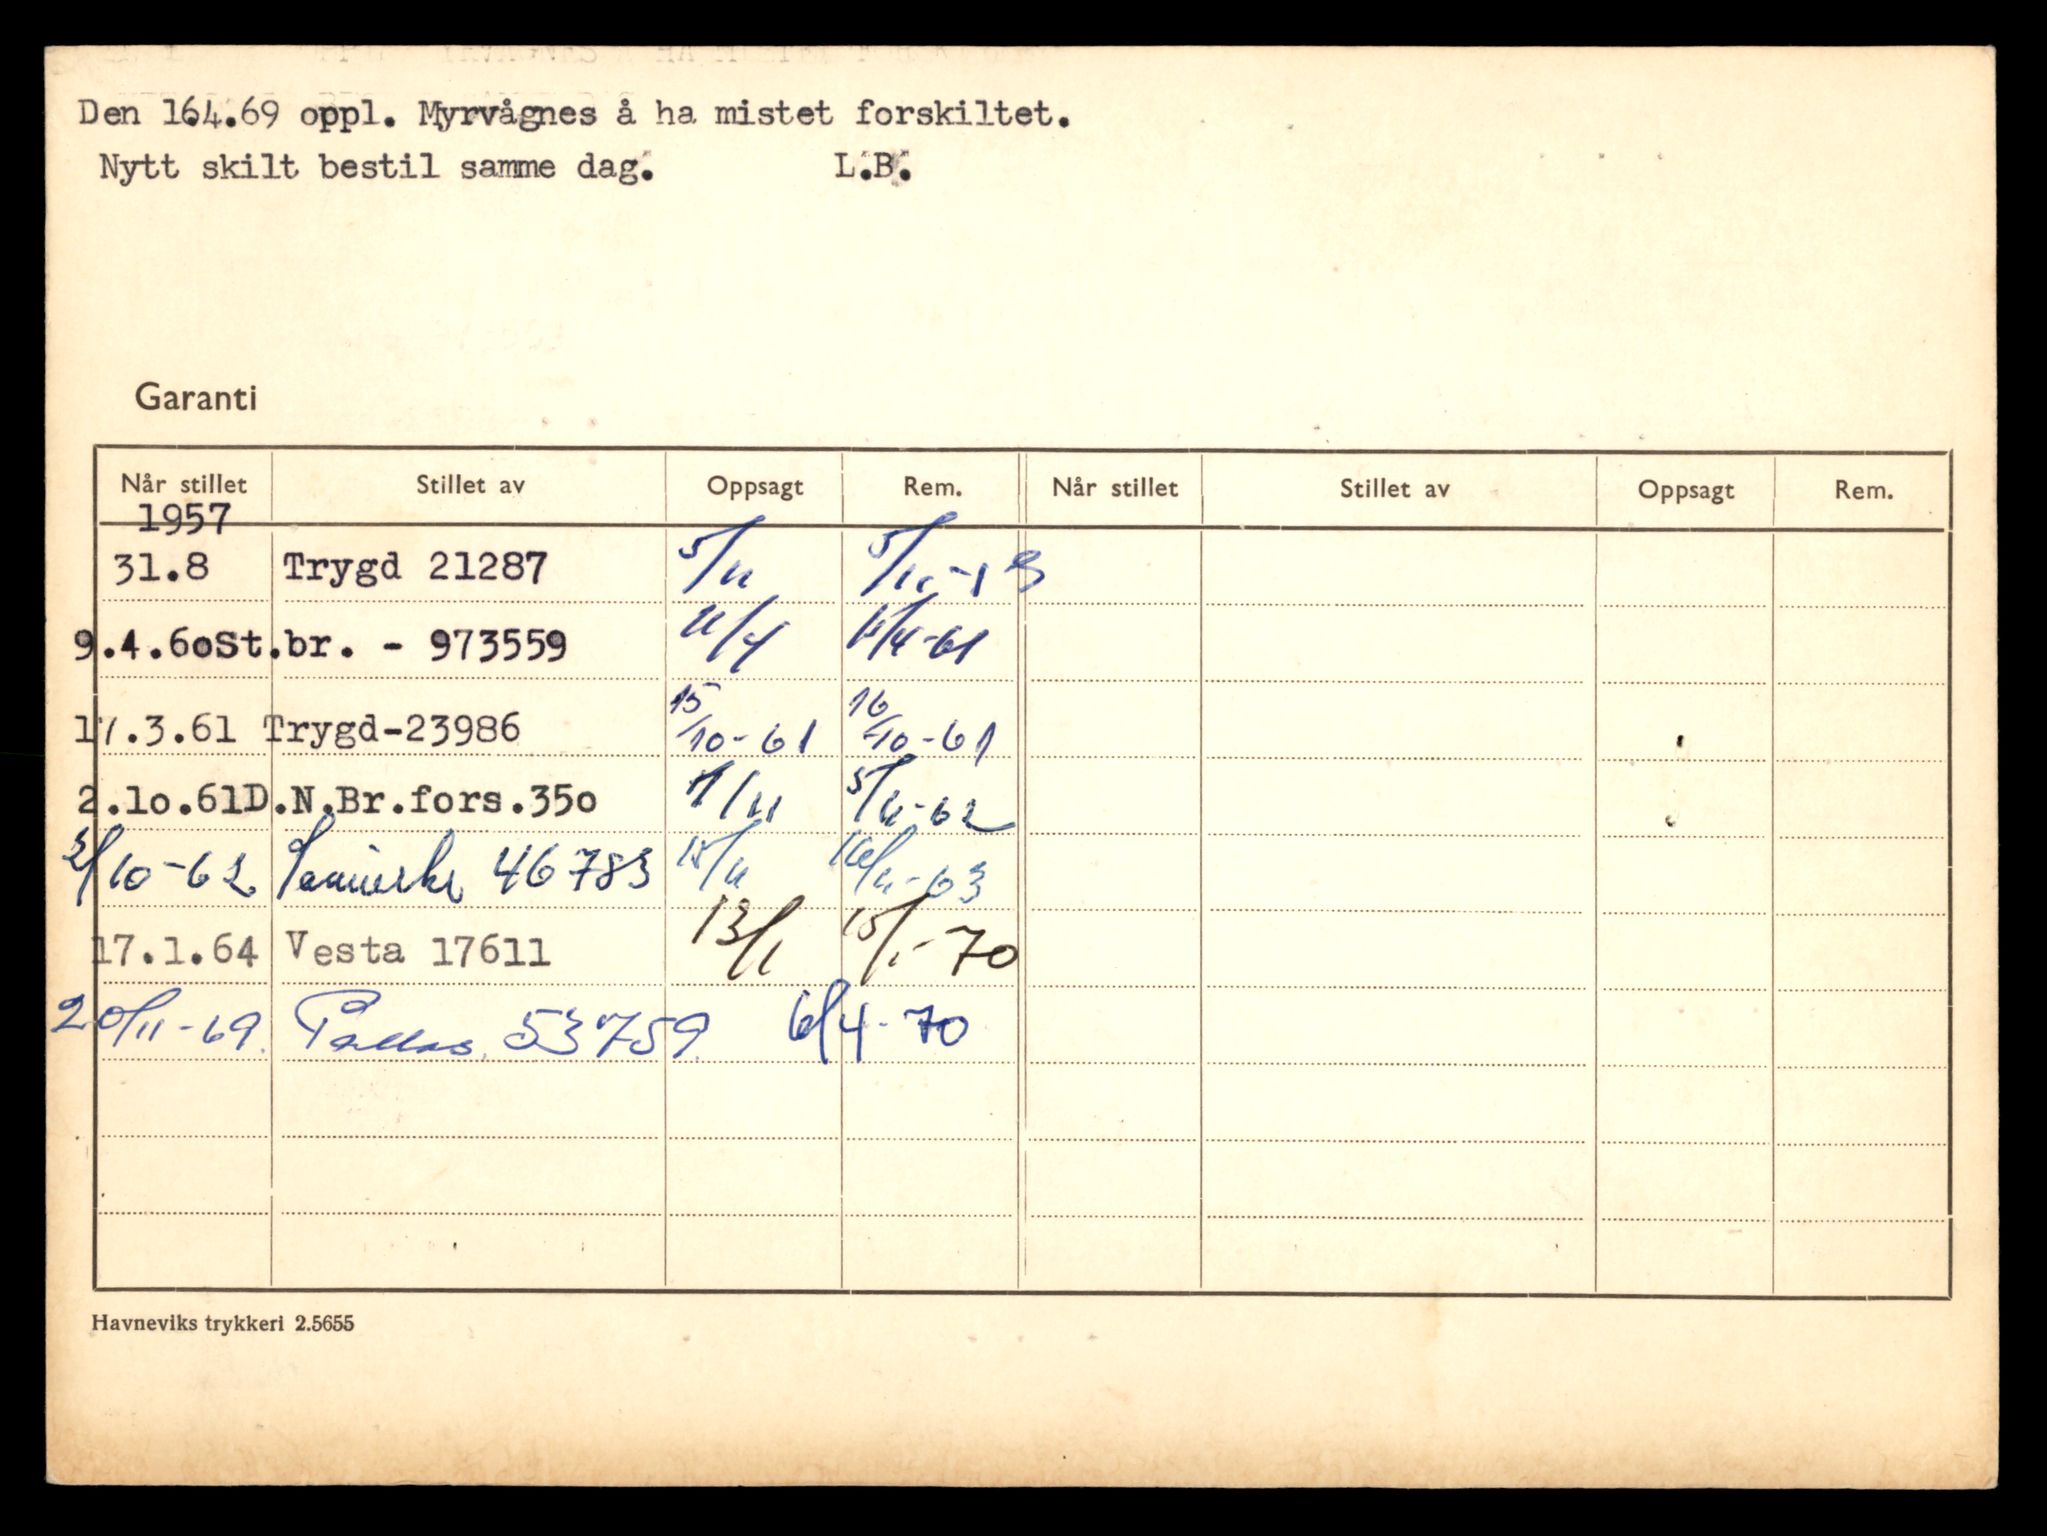 Den 16.4.69 oppl. Myrvågnes å ha mistet forskiltet.
Nytt skilt bestil samme dag. L.B.
Garanti
Når stillet Stillet av Oppsagt Rem. Når stillet Stillet av Oppsagt Rem.
1957
31.8 Trygd 21287 5/11 5/11-
9.4.60 St.br. - 973559 11/4 11/4-61
17.3.61 Trygd-23986 15/10-61 16/10-61
2.10.61 D.N.Br.fors.350 1/11 5/11-62
2/10-62 46783 15/11 16/11-63
17.1.64 Vesta 17611 13/1 15/1-70
20/11-69. Pallas. 53759. 6/4-70
Havneviks trykkeri 2.5655